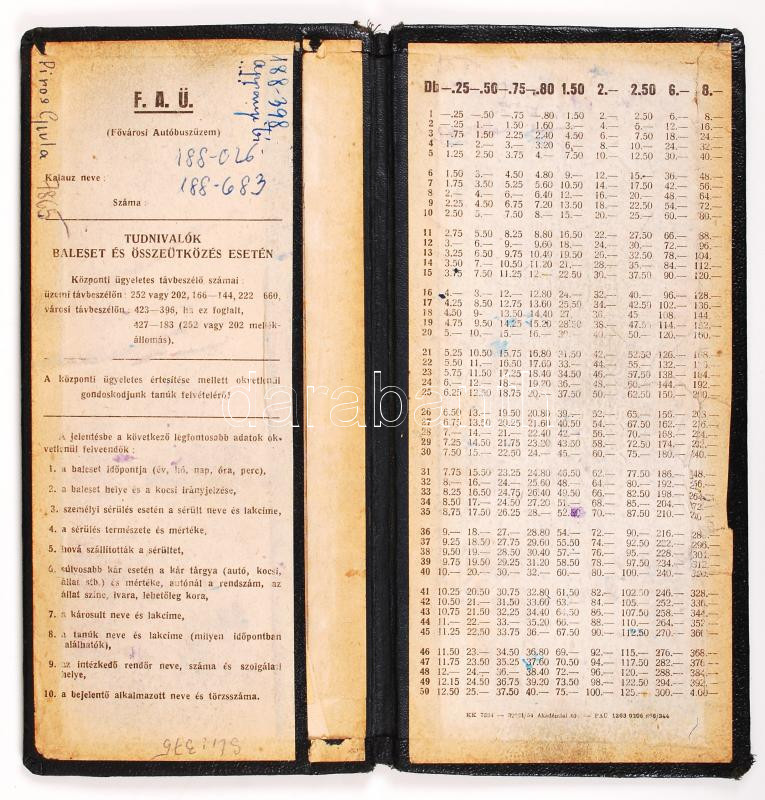 F. A. Ü.
(Fővárosi Autóbuszüzem)
188-026
Kalauz neve :
188-683
Száma :
188-398
Piros Gyula 7865
TUDNIVALÓK
BALESET ÉS ÖSSZEÜTKÖZÉS ESETÉN
Központi ügyeletes távbeszélő számai :
üzemi távbeszélőn : 252 vagy 202, 166—144, 222 660,
városi távbeszélőn 423—396, ha ez foglalt,
427—183 (252 vagy 202 mellék-
állomás),
A központi ügyeletes értesítése mellett okvetlenül
gondoskodjunk tanúk felvételéről!
A jelentésbe a következő legfontosabb adatok ok-
vetlenül felveendők :
1. a baleset időpontja (év, hó, nap, óra, perc),
2. a baleset helye és a kocsi irányjelzése,
3. személyi sérülés esetén a sérült neve és lakcíme,
4. a sérülés természete és mértéke,
5. hová szállították a sérültet,
6. súlyosabb kár esetén a kár tárgya (autó, kocsi,
állat stb.) és mértéke, autónál a rendszám, az
állat színe, ivara, lehetőleg kora,
7. a károsult neve és lakcíme,
8. a tanúk neve és lakcíme (milyen időpontban
találhatók),
9. az intézkedő rendőr neve, száma és szolgálati
helye,
10. a bejelentő alkalmazott neve és törzsszáma.
Db —.25 —.50 —.75 —.80 1.50 2.— 2.50 6.— 8.—
1 —.25 —.50 —.75 —.80 1.50 2.— 2.50 6.— 8.—
2 —.50 1.— 1.50 1.60 3.— 4.— 5.— 12.— 16.—
3 —.75 1.50 2.25 2.40 4.50 6.— 7.50 18.— 24.—
4 1.— 2.— 3.— 3.20 6.— 8.— 10.— 24.— 32.—
5 1.25 2.50 3.75 4.— 7.50 10.— 12.50 30.— 40.—
6 1.50 3.— 4.50 4.80 9.— 12.— 15.— 36.— 48.—
7 1.75 3.50 5.25 5.60 10.50 14.— 17.50 42.— 56.—
8 2.— 4.— 6.— 6.40 12.— 16.— 20.— 48.— 64.—
9 2.25 4.50 6.75 7.20 13.50 18.— 22.50 54.— 72.—
10 2.50 5.— 7.50 8.— 15.— 20.— 25.— 60.— 80.—
11 2.75 5.50 8.25 8.80 16.50 22.— 27.50 66.— 88.—
12 3.— 6.— 9.— 9.60 18.— 24.— 30.— 72.— 96.—
13 3.25 6.50 9.75 10.40 19.50 26.— 32.50 78.— 104.—
14 3.50 7.— 10.50 11.20 21.— 28.— 35.— 84.— 112.—
15 3.75 7.50 11.25 12.— 22.50 30.— 37.50 90.— 120.—
16 4.— 8.— 12.— 12.80 24.— 32.— 40.— 96.— 128.—
17 4.25 8.50 12.75 13.60 25.50 34.— 42.50 102.— 136.—
18 4.50 9.— 13.50 14.40 27.— 36.— 45 108.— 144.—
19 4.75 9.50 14.25 15.20 28.50 38.— 47.50 114.— 152.—
20 5.— 10.— 15.— 16.— 30.— 40.— 50.— 120.— 160.—
21 5.25 10.50 15.75 16.80 31.50 42.— 52.50 126.— 168.—
22 5.50 11.— 16.50 17.60 33.— 44.— 55.— 132.—
23 5.75 11.50 17.25 18.40 34.50 46.— 57.50 138.— 184.—
24 6.— 12.— 18.— 19.20 36.— 48.— 60.— 144.— 192.—
25 6.25 12.50 18.75 20.— 37.50 50.— 62.50 150.— 200.—
26 6.50 13.— 19.50 20.80 39.— 52.— 65.— 156.— 208.—
27 6.75 13.50 20.25 21.60 40.50 54.— 67.50 162.— 216.—
28 7.— 14.— 21.— 22.40 42.— 56.— 70.— 168.— 224.—
29 7.25 14.50 21.75 23.20 43.50 58.— 72.50 174.— 232.—
30 7.50 15.— 22.50 24.— 45.— 60.— 75.— 180.— 240.—
31 7.75 15.50 23.25 24.80 46.50 62.— 77.50 186.— 248.—
32 8.— 16.— 24.— 25.60 48.— 64.— 80.— 192.— 256.—
33 8.25 16.50 24.75 26.40 49.50 66.— 82.50 198.— 264.—
34 8.50 17.— 24.50 27.20 51.— 68.— 85.— 204.— 272.—
35 8.75 17.50 26.25 28.— 52.50 70.— 87.50 210.—
36 9.— 18.— 27.— 28.80 54.— 72.— 90.— 216.—
37 9.25 18.50 27.75 29.60 55.50 74.— 92.50 222.— 296.—
38 9.50 19.— 28.50 30.40 57.— 76.— 95.— 228.—
39 9.75 19.50 29.25 31.20 58.50 78.— 97.50 234.— 312.—
40 10.— 20.— 30.— 32.— 60.— 80.— 100.— 240.— 320.—
41 10.25 20.50 30.75 32.80 61.50 82.— 102.50 246.— 328.—
42 10.50 21.— 31.50 33.60 63.— 84.— 105.— 252.— 336.—
43 10.75 21.50 32.25 34.40 64.50 86.— 107.50 258.— 344.—
44 11.— 22.— 33.— 35.20 66.— 88.— 110.— 264.— 352.—
45 11.25 22.50 33.75 36.— 67.50 90.— 112.50 270.— 360.—
46 11.50 23.— 34.50 36.80 69.— 92.— 115.— 276.— 368.—
47 11.75 23.50 35.25 37.60 70.50 94.— 117.50 282.— 376.—
48 12.— 24.— 36.— 38.40 72.— 96.— 120.— 288.— 384.—
49 12.15 24.50 36.75 39.20 73.50 98.— 122.50 294.— 392.—
50 12.50 25.— 37.50 40.— 75.— 100.— 125.— 300.— 4.00—
darabanth